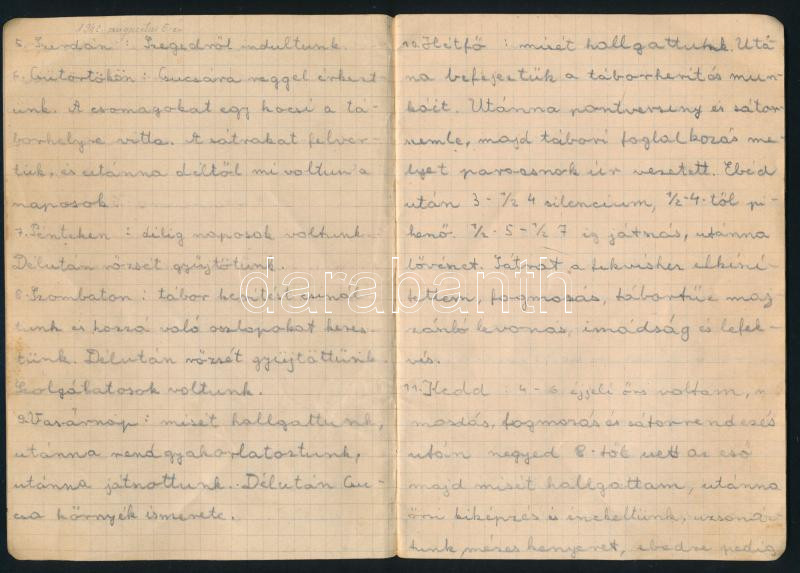 augusztus 5-én
5. Szerdán : Szegedről indultunk.
6. Csütörtökön : Csucsára reggel érkezt-
ünk. A csomagokat egy kocsi a tá-
borhelyre vitte. A sátrakat felver-
tük, és utánna déltől mi voltun a
naposok.
7. Pénteken : délig naposok voltunk.
Délután rőzsét gyűjtöttünk.
8. Szombaton : tábor keritést csinál-
tunk és hozzá való oszlopokat keres-
tünk. Délután rőzsét gyüjtöttünk.
Szolgálatosok voltunk.
9. Vasárnap : misét hallgattunk,
utánna rendgyakorlatoztunk,
utánna játnottunk. Délután Csu-
csa környék ismerete.
10. Hétfő : misét hallgattunk. Utá-
na befejeztük a táborkerítés mun-
káit. Utánna pontverseny és sátor-
szemle, majd tábori foglalkozás me-
lyet parancsnok úr vezetett. Ebéd
után 3 - 1/2 4 silencium, 1/2-4-től pi-
henő. 1/2 - 5 - 1/2 7 ig játszás, utánna
lövészet. Sátrat a fekvéshez elkészí-
tettem, fogmosás, tábortűz maj
zászló levonás, imádság és lefek-
vés.
11. Kedd : 4 - 6 éjjeli őrs voltam,
mosdás, fogmosás és sátorrendezés
után negyed 8-tól
majd misét hallgattam, utánna
őrsi kiképzés és énekeltünk, uzsonáz-
tunk mézes kenyeret, ebédre pedig
darabanth